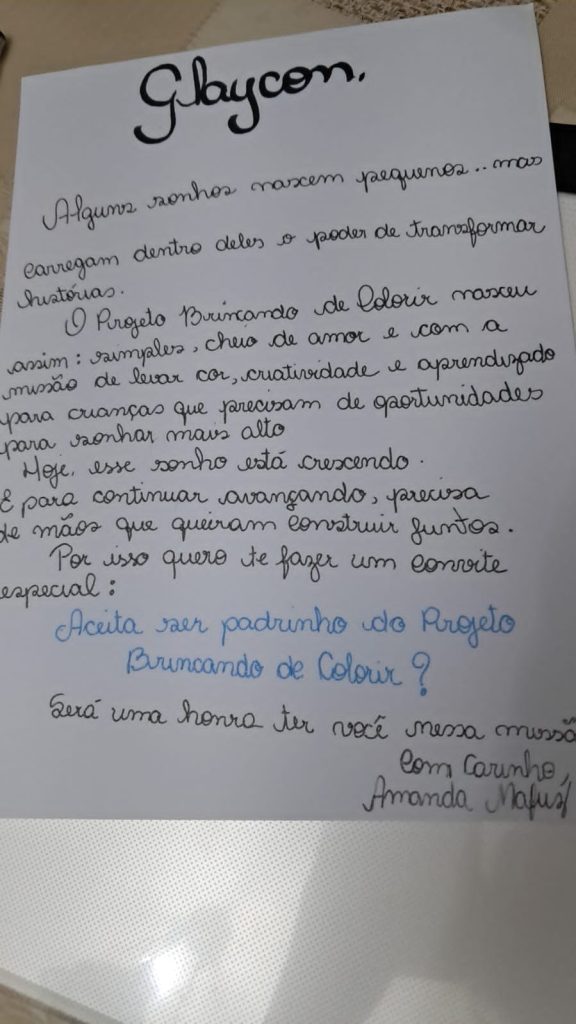 Glaycon.
Alguns sonhos nascem pequenos.. mas
carregam dentro deles o poder de transformar
histórias.
O Projeto Brincando de Colorir nasceu
assim: simples, cheio de amor e com a
missão de levar cor, criatividade e aprendizado
para crianças que precisam de oportunidades
para sonhar mais alto
Hoje, esse sonho está crescendo.
E para continuar avançando, precisa
de mãos que queiram construir juntos.
Por isso quero te fazer um convite
especial:
Aceita ser padrinho do Projeto
Brincando de Colorir?
Será uma honra ter você nessa missão
Com Carinho,
Amanda